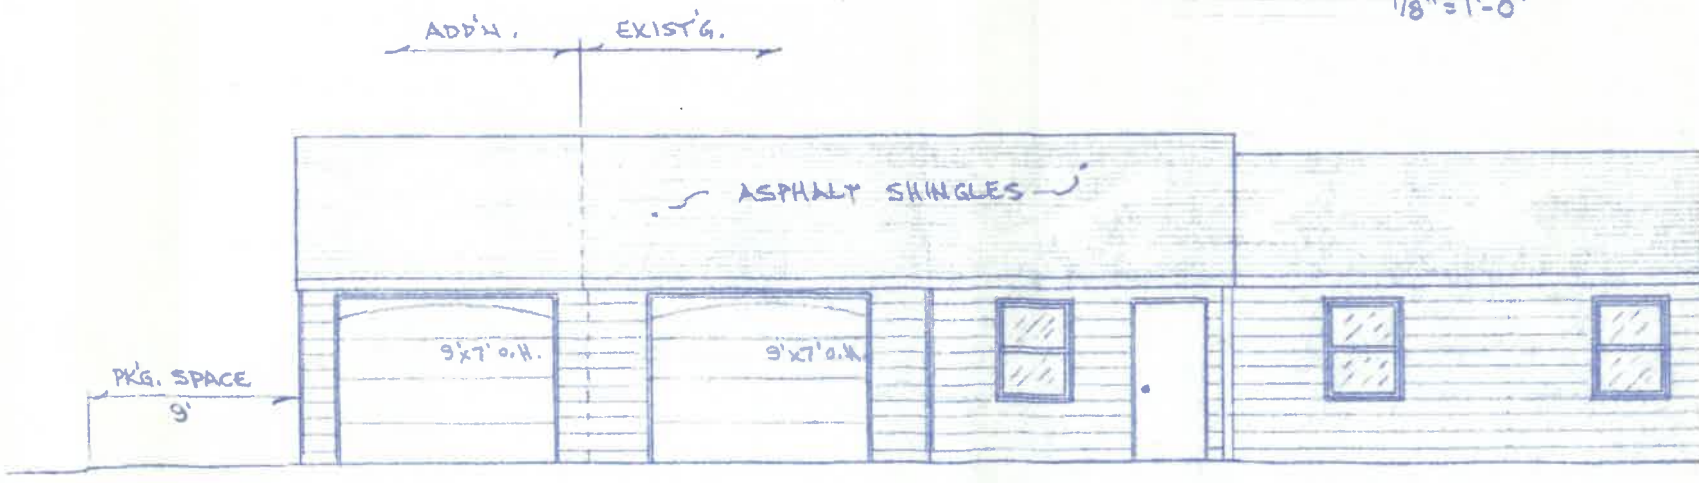 1/8" = 1'-0"
ADD'N.
EXIST'G.
ASPHALT SHINGLES
9'x7' O.H.
9'x7' O.H.
PK'G. SPACE
9'